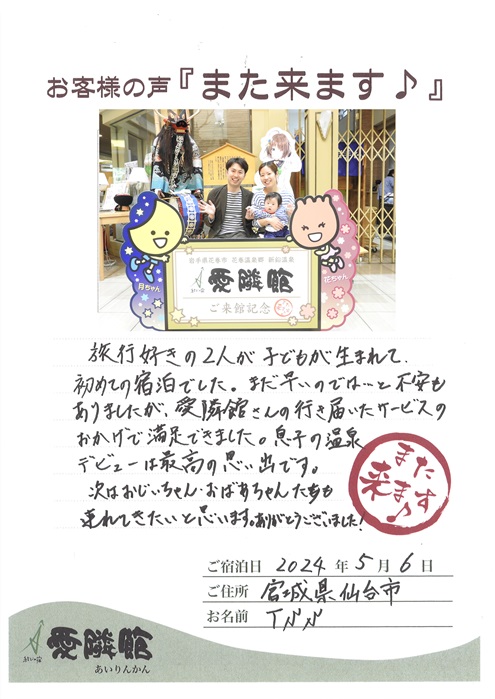 お客様の声『また来ます♪』
月ちゃん
花ちゃん
岩手県花巻市 花巻温泉郷 新鉛温泉
愛隣館
ご来館記念
旅行好きの2人が子どもが生まれて、
初めての宿泊でした。まだ早いのでは…と不安も
ありましたが、愛隣館さんの行き届いたサービスの
おかげで満足できました。息子の温泉
デビューは最高の思い出です。
次はおじいちゃん・おばあちゃんたちも
連れてきたいと思います。ありがとうございました!
また
来ます♪
ご宿泊日 2024年5月6日
ご住所 宮城県仙台市
お名前
愛隣館
あいりんかん